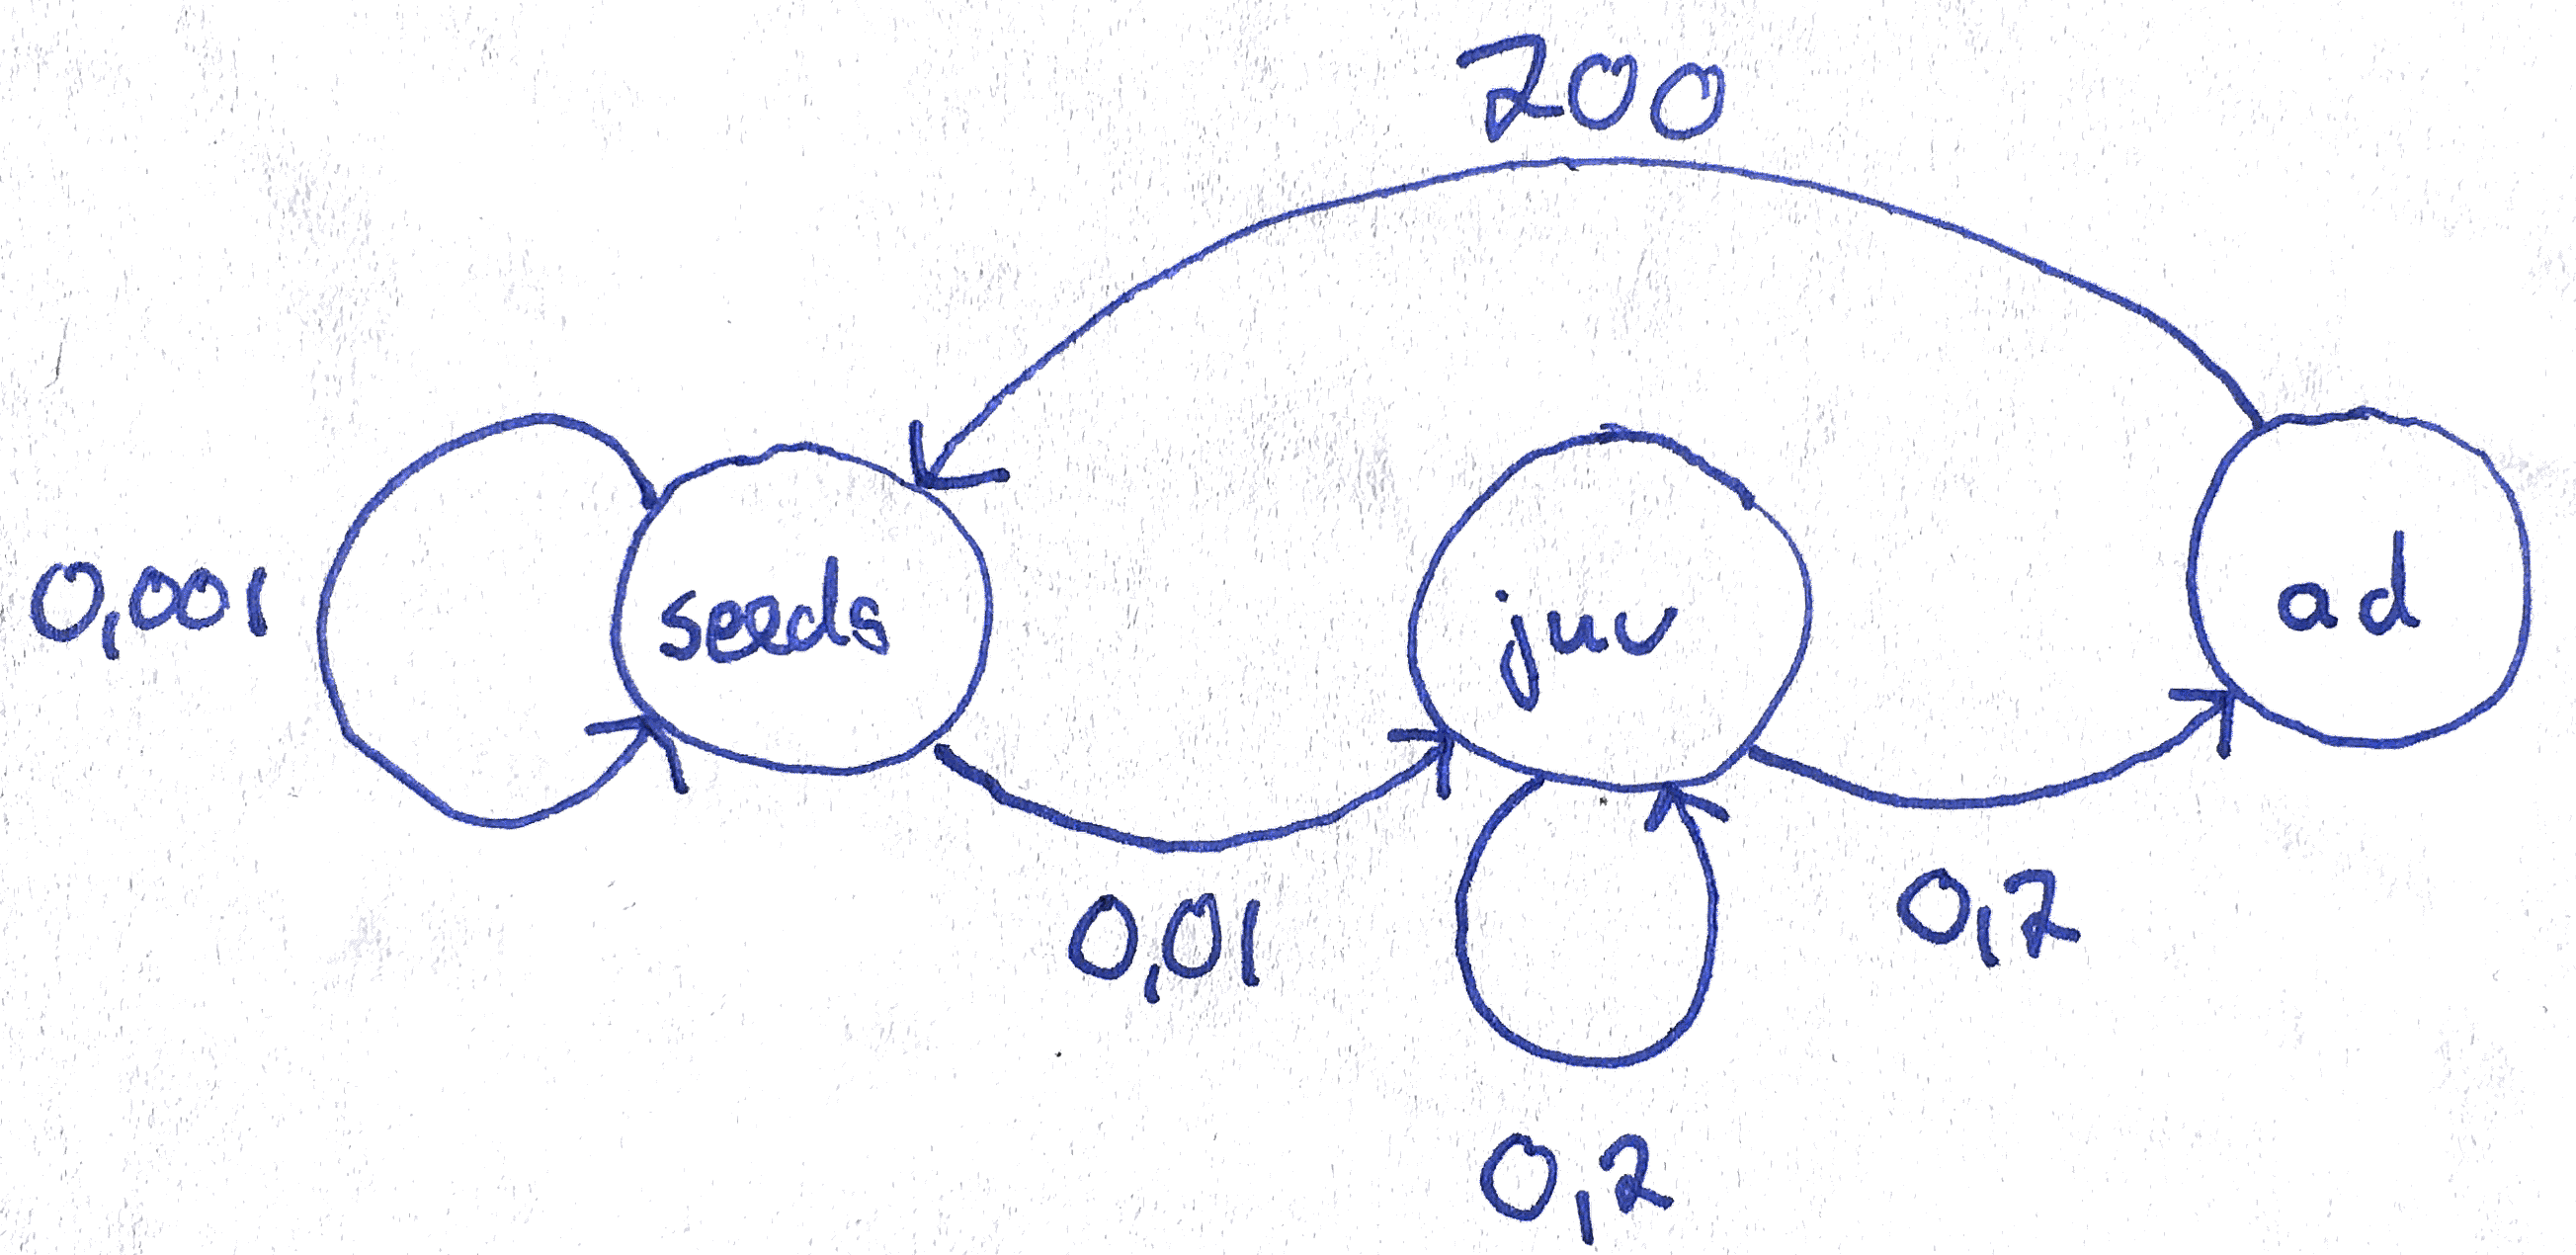 200
0,001
seeds
juv
ad
0,01
0,2
0,2